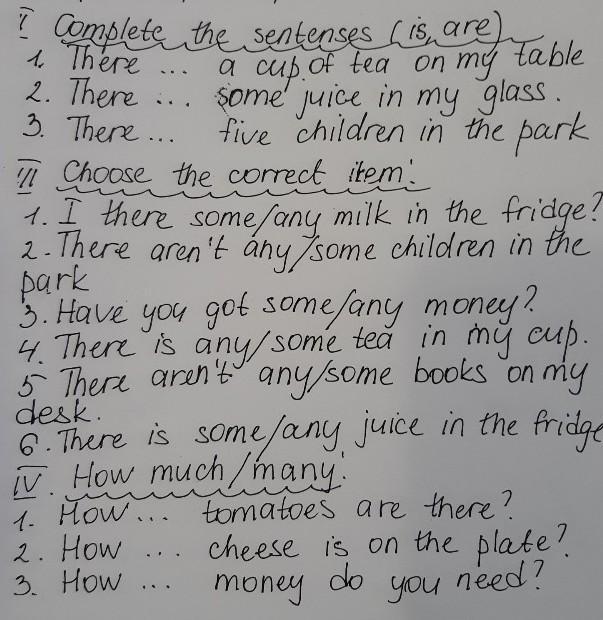 I Complete the sentences (is, are)
1. There ... a cup of tea on my table
2. There ... some juice in my glass.
3. There ... five children in the park
III Choose the correct item:
1. I there some/any milk in the fridge?
2. There aren't any/some children in the
park
3. Have you got some/any money?
4. There is any/some tea in my cup.
5 There aren't any/some books on my
desk.
6. There is some/any juice in the fridge
IV. How much/many:
1. How... tomatoes are there?
2. How ... cheese is on the plate?
3. How ... money do you need?